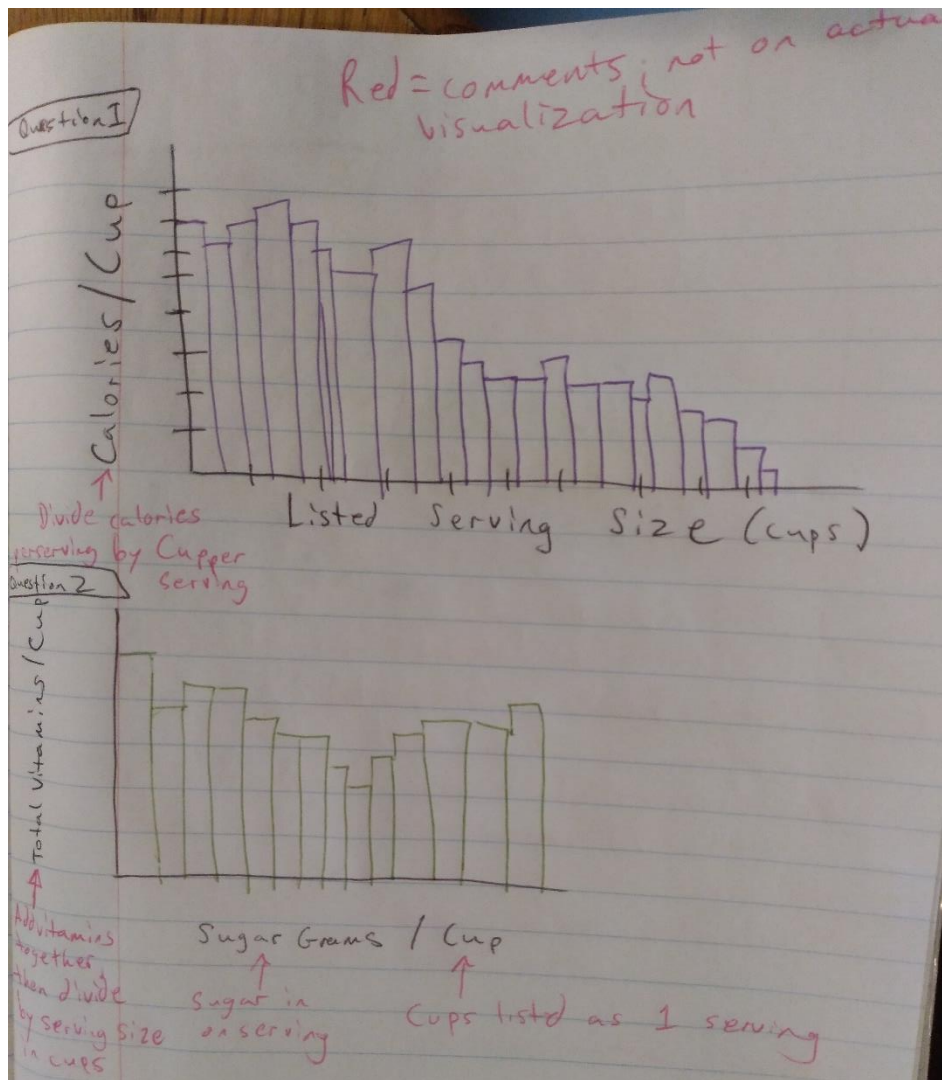 Red = comments, not on actua
visualization
Question 1
Calories / Cup
Listed Serving Size (cups)
Divide calories
perserving by Cupper
serving
Question 2
Total Vitamins / Cup
Sugar Grams / Cup
Add vitamins
together,
then divide
by serving size
in cups
Sugar in
on serving
Cups listd as 1 serving